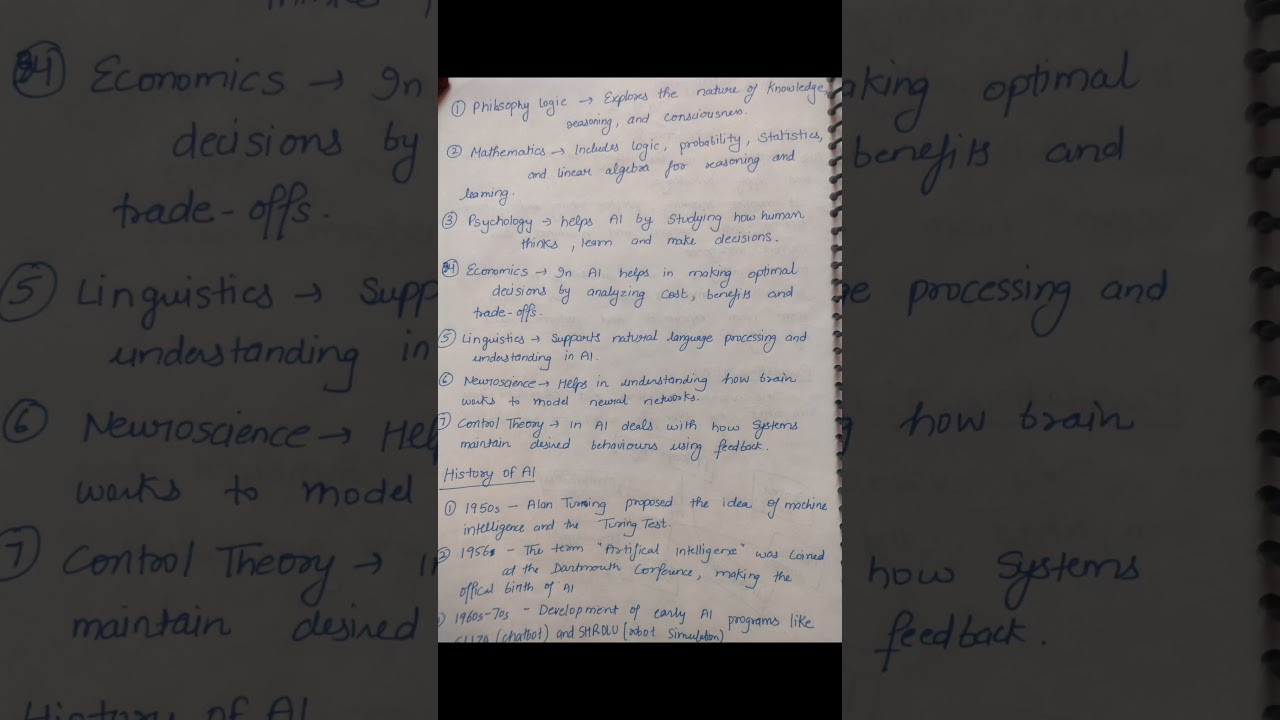 ① Philsophy logic → Explores the nature of Knowledge,
reasoning, and consciousness.
② Mathematics → Includes logic, probability, Statistics,
and linear algebra for reasoning and
learning.
③ Psychology → helps AI by studying how human
thinks, learn and make decisions.
④ Economics → In AI helps in making optimal
decisions by analyzing cost, benefits and
trade-offs.
⑤ Linguistics → Supports natural language processing and
understanding in AI.
⑥ Neuroscience → Helps in understanding how brain
works to model neural networks.
⑦ Control Theory → in AI deals with how Systems
maintain desired behaviours using feedback.
History of AI
① 1950s - Alan Turning proposed the idea of machine
intelligence and the Turing Test.
② 1956s - The term "Artifical Intelligence" was coined
at the Dartmouth Conference, making the
offical birth of AI
1960s-70s - Development of early AI programs like
ELIZA (chatbot) and SHRDLU [robot simulation)